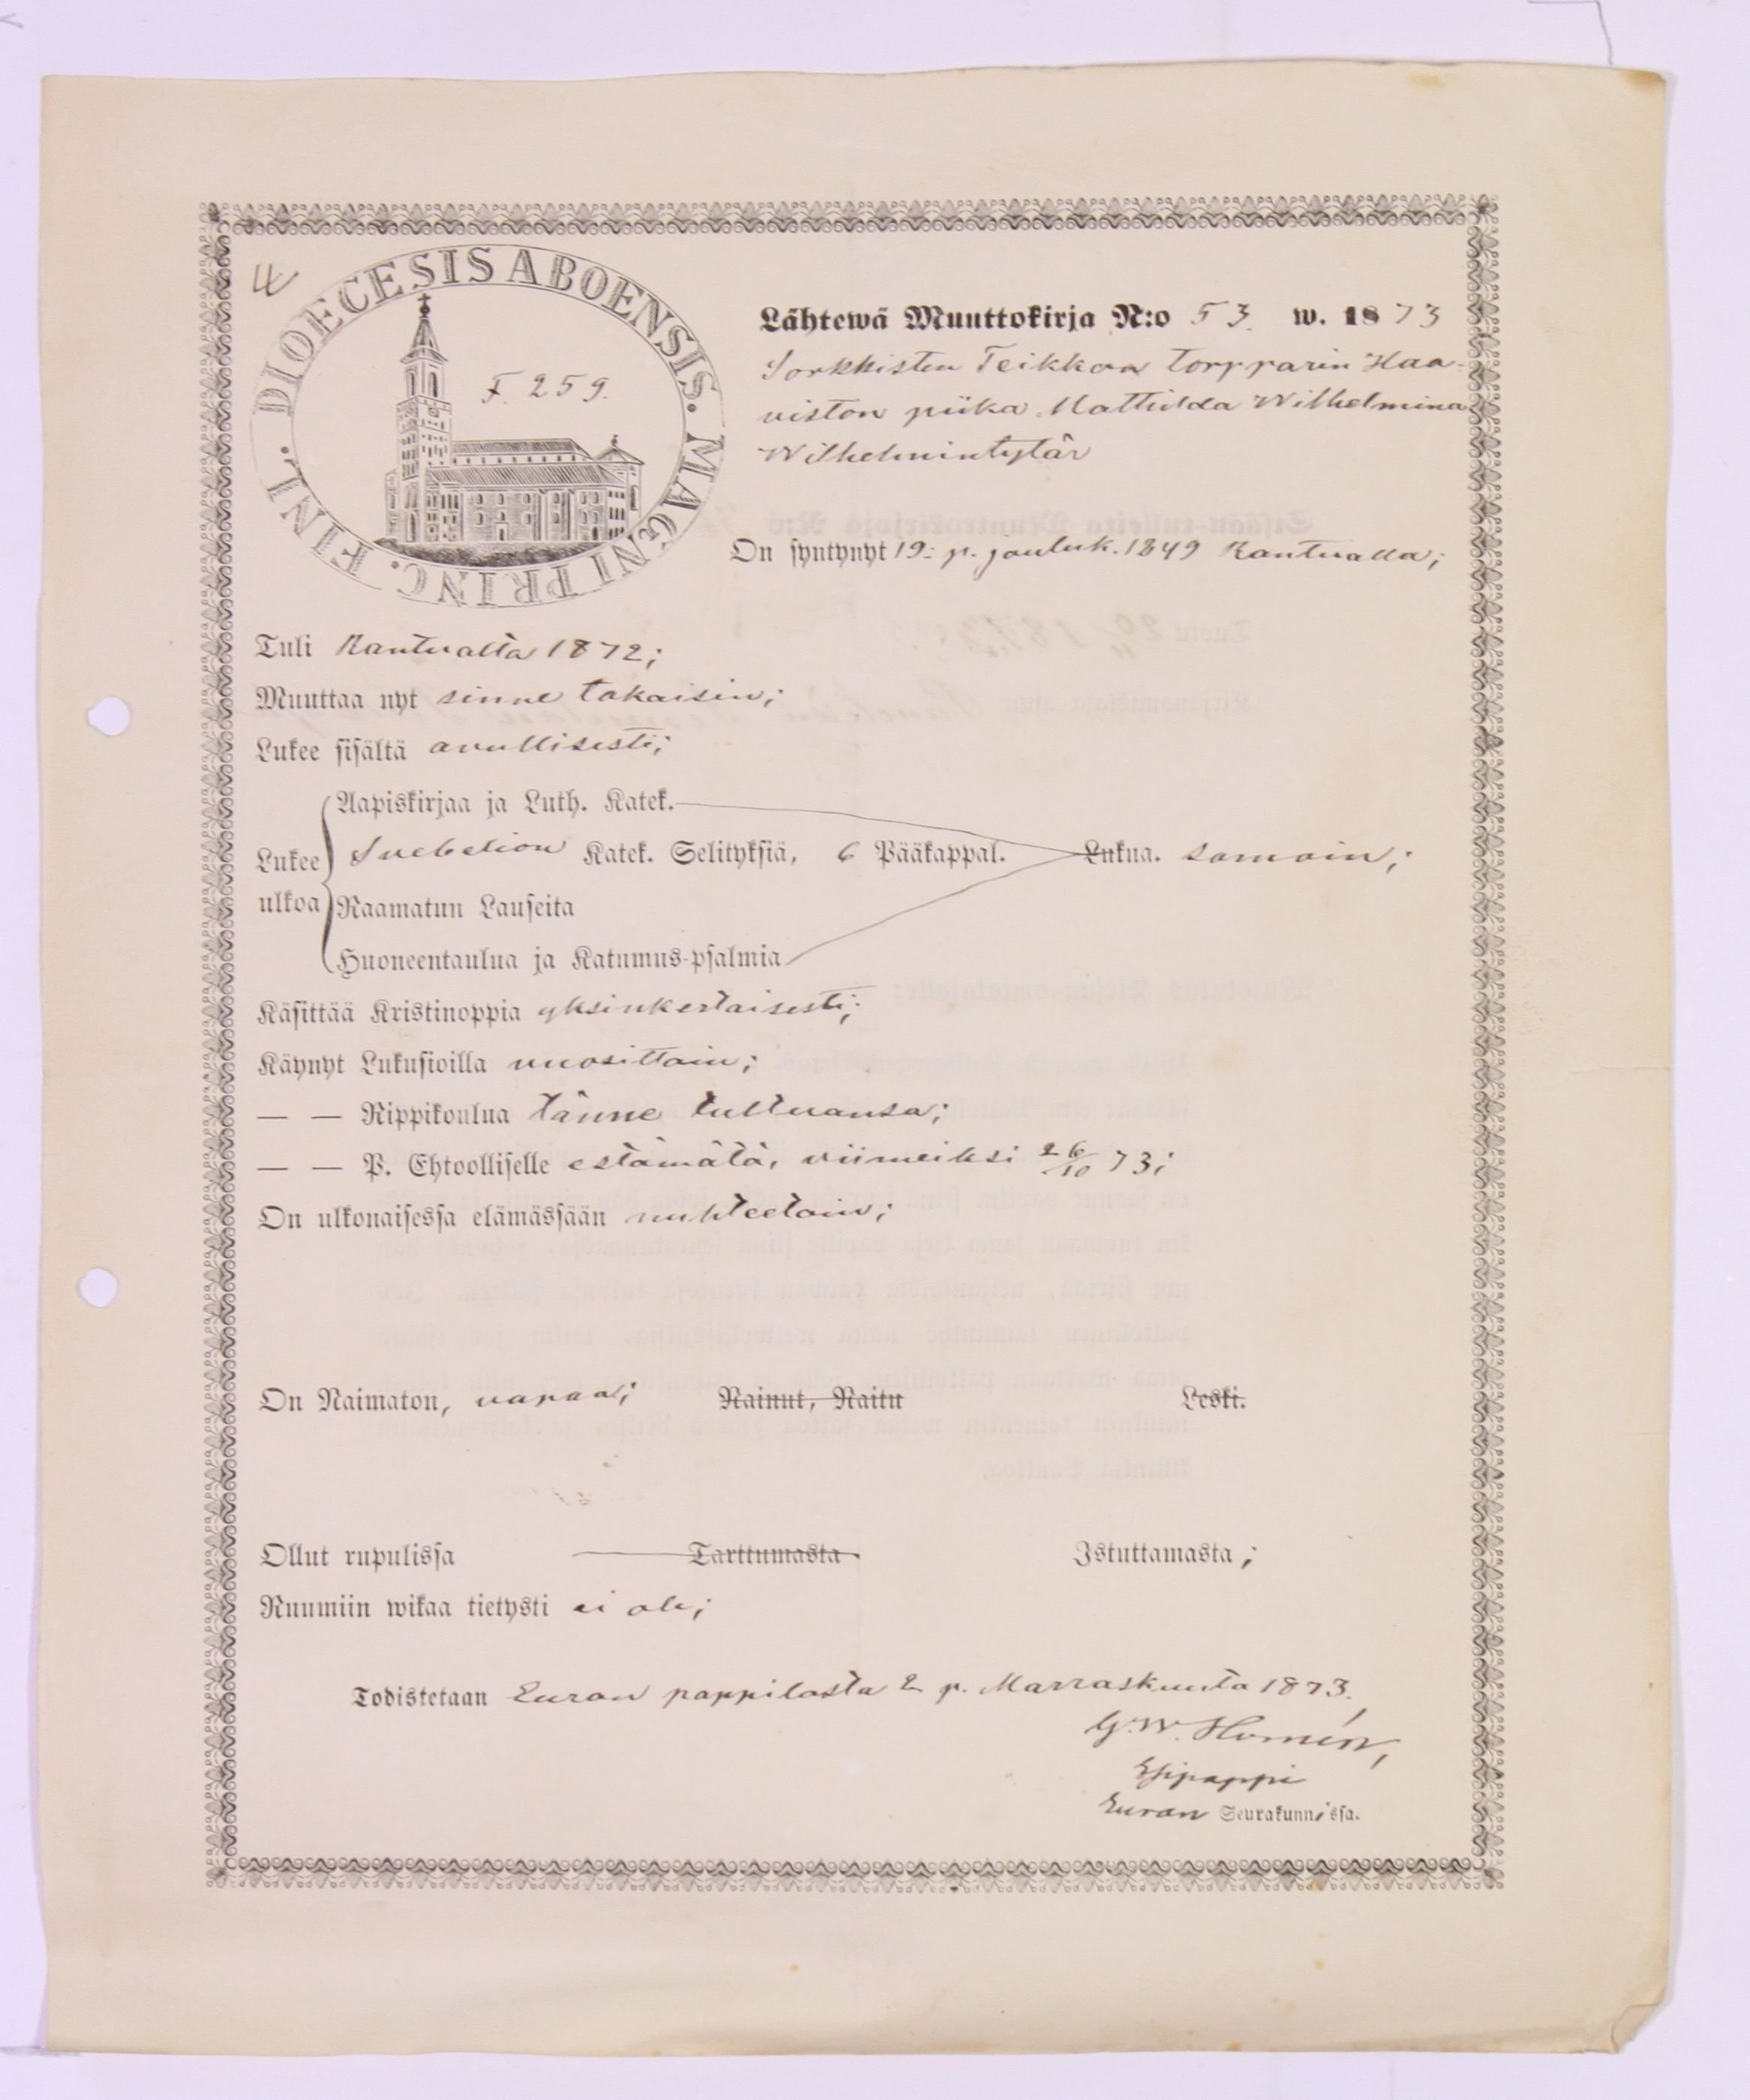 DIOECESIS ABOENSIS. MAGNI PRINC. FINL.
F. 259.
Lähtewä Muuttokirja N:o 53. w. 1873
Sorkkisten Teikkan torpparin Haa-
viston piika Mathilda Wilhelmina
Wilhelmintytär
On syntynyt 19: p. jouluk. 1849 Kantvalla;
Tuli Kantvalta 1872;
Muuttaa nyt sinne takaisin;
Lukee sisältä avullisesti;
Aapiskirjaa ja Luth. Katek.
Lukee Svebelion Katek. Selityksiä, 6 Pääkappal. Lukua. samoin;
ulkoa Raamatun Lauseita
Huoneentaulua ja Katumus-psalmia
Käsittää Kristinoppia yksinkertaisesti;
Käynyt Lukusioilla vuosittain;
— — Rippikoulua tänne tultuansa;
— — P. Ehtoolliselle estämätä, viimeiksi 26/10 73;
On ulkonaisessa elämässään nuhteetoin;
On Naimaton, vapaa; Nainut, Naitu Leski.
Ollut rupulissa Tarttumasta Istuttamasta;
Ruumiin wikaa tietysti ei ole;
Todistetaan Euran pappilasta 2 p. Marraskuuta 1873.
G. W. Homén,
Esipappi
Euran Seurakunnissa.